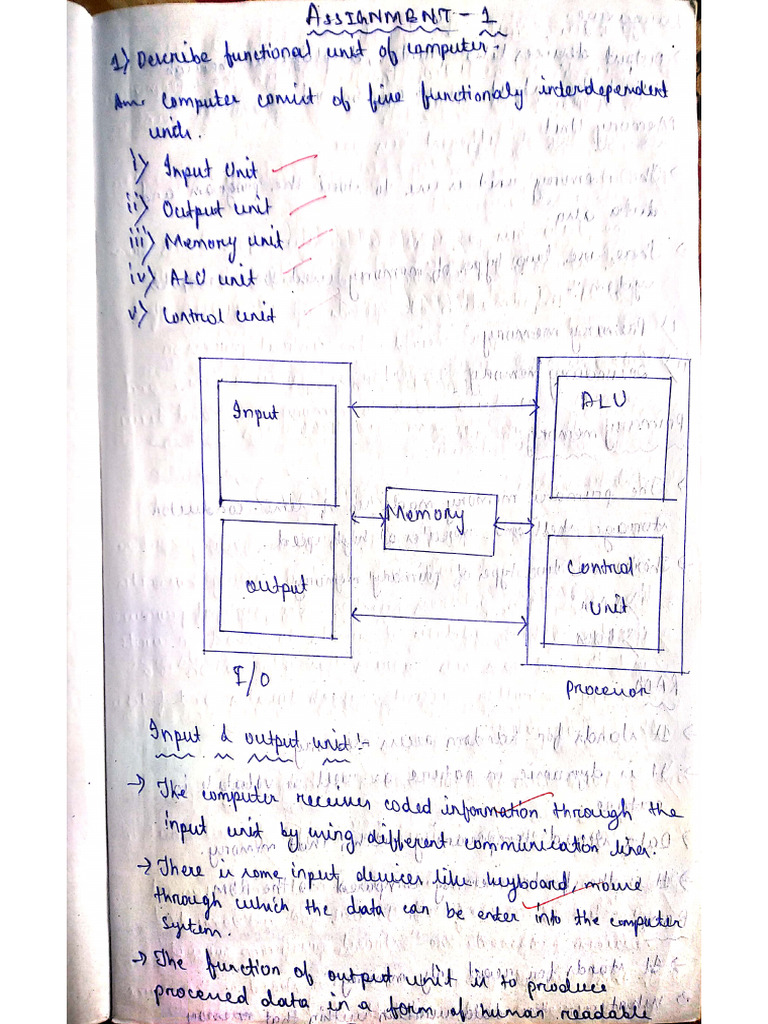 ASSIGNMENT - 1
1) Describe functional unit of computer.
Ans. Computer consist of five functionaly inderdependent
units.
i) Input Unit
ii) Output unit
iii) Memory unit
iv) ALU unit
v) Control unit
Input
ALU
Memory
Output
Control
Unit
I/O
Processor
Input & output unit :-
→ The computer receives coded information through the
input unit by using different communication lines.
→ There is some input devices like keyboard, mouse
through which the data can be enter into the computer
system.
→ The function of output unit is to produce
processed data in a form of human readable